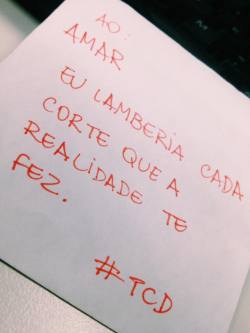 AO:
AMAR
EU LAMBERIA CADA
CORTE QUE A
REALIDADE TE
FEZ.
#TCD